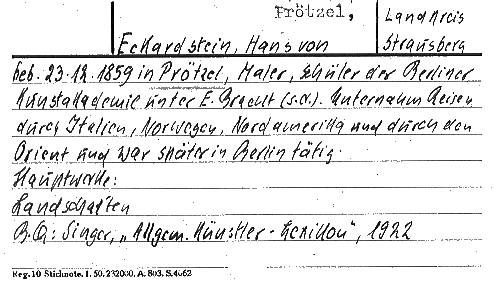 Prötzel,
Landkreis
Eckardstein, Hans von
Strausberg
Geb. 23.12.1859 in Prötzel, Maler, Schüler der Berliner
Kunstakademie unter E. Bracht (s.d.). Unternahm Reisen
durch Italien, Norwegen, Nordamerika und durch den
Orient und war später in Berlin tätig.
Hauptwerke:
Landschaften
B.Q.: Singer, „Allgem. Künstler-Lexikon", 1922
Reg. 10 Stichnote. I. 50. 232000. A. 803. S.4662